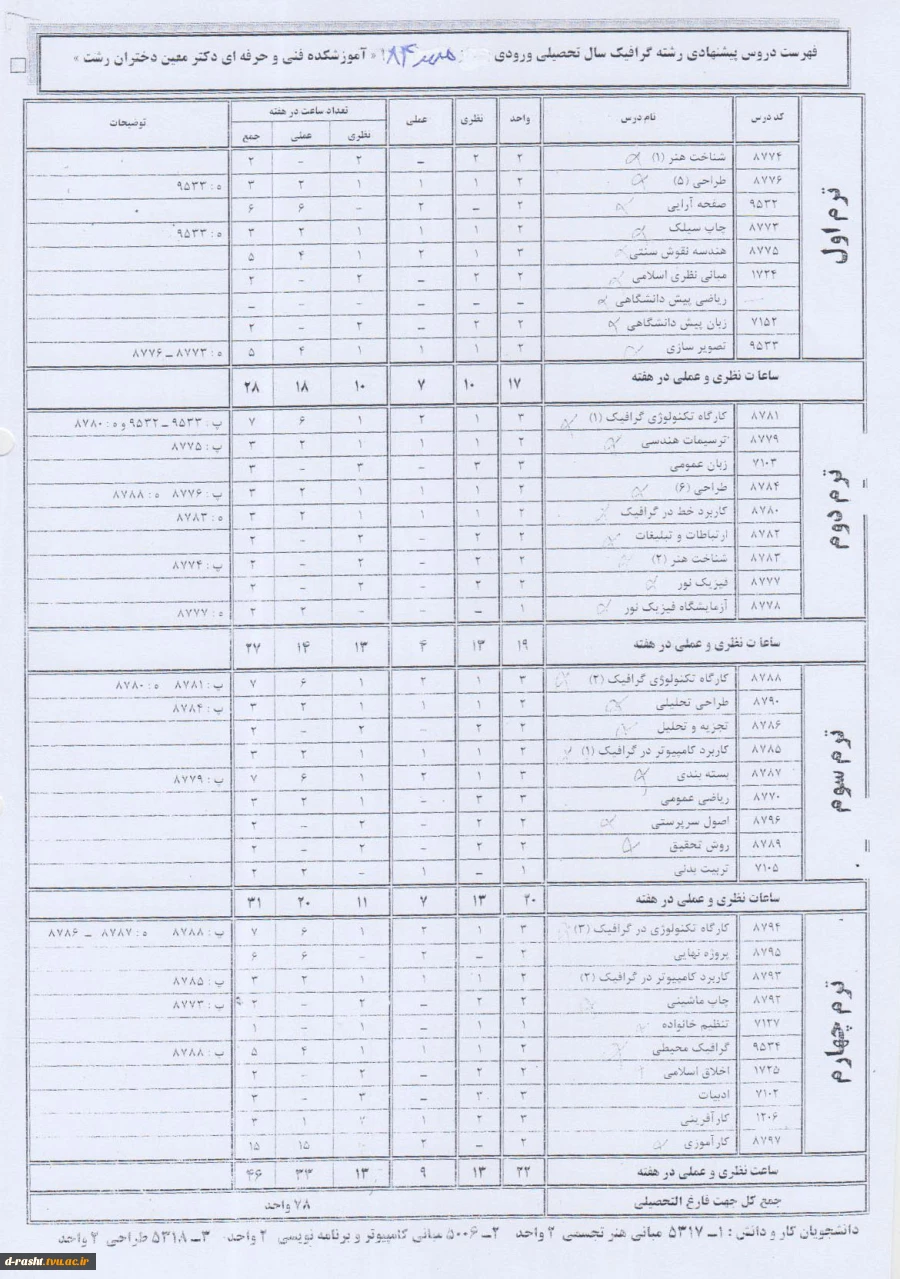 فهرست دروس پیشنهادی رشته گرافیک سال تحصیلی ورودی مهر ۸۴ « آموزشکده فنی و حرفه ای دکتر معین دختران رشت »
کد درس نام درس واحد نظری عملی تعداد ساعت در هفته توضیحات
نظری عملی جمع
ترم اول
۸۷۷۴ شناخت هنر (۱) ۲ ۲ – ۲ – ۲
۸۷۷۶ طراحی (۵) ۲ ۱ ۱ ۱ ۲ ۳ ه : ۹۵۳۳
۹۵۳۲ صفحه آرایی ۲ – ۲ – ۶ ۶
۸۷۷۳ چاپ سیلک ۲ ۱ ۱ ۱ ۲ ۳ ه : ۹۵۳۳
۸۷۷۵ هندسه نقوش سنتی ۳ ۱ ۲ ۱ ۴ ۵
۱۷۲۴ مبانی نظری اسلامی ۲ ۲ – ۲ – ۲
ریاضی پیش دانشگاهی – – – – – –
۷۱۵۲ زبان پیش دانشگاهی ۲ ۲ – ۲ – ۲
۹۵۳۳ تصویر سازی ۲ ۱ ۱ ۱ ۴ ۵ ه : ۸۷۷۳ ــ ۸۷۷۶
ساعات نظری و عملی در هفته ۱۷ ۱۰ ۷ ۱۰ ۱۸ ۲۸
ترم دوم
۸۷۸۱ کارگاه تکنولوژی گرافیک (۱) ۳ ۱ ۲ ۱ ۶ ۷ پ : ۹۵۳۳ ــ ۹۵۳۲ و ه : ۸۷۸۰
۸۷۷۹ ترسیمات هندسی ۲ ۱ ۱ ۱ ۲ ۳ پ : ۸۷۷۵
۷۱۰۳ زبان عمومی ۳ ۳ – ۳ – ۳
۸۷۸۴ طراحی (۶) ۲ ۱ ۱ ۱ ۲ ۳ پ : ۸۷۷۶ ه : ۸۷۸۸
۸۷۸۰ کاربرد خط در گرافیک ۲ ۱ ۱ ۱ ۲ ۳ ه : ۸۷۸۳
۸۷۸۲ ارتباطات و تبلیغات ۲ ۲ – ۲ – ۲
۸۷۸۳ شناخت هنر (۲) ۲ ۲ – ۲ – ۲ پ : ۸۷۷۴
۸۷۷۷ فیزیک نور ۲ ۲ – ۲ – ۲
۸۷۷۸ آزمایشگاه فیزیک نور ۱ – – – ۲ ۲ ه : ۸۷۷۷
ساعات نظری و عملی در هفته ۱۹ ۱۳ ۴ ۱۳ ۱۴ ۲۷
ترم سوم
۸۷۸۸ کارگاه تکنولوژی گرافیک (۲) ۳ ۱ ۲ ۱ ۶ ۷ پ : ۸۷۸۱ ه : ۸۷۸۰
۸۷۹۰ طراحی تحلیلی ۲ ۱ ۱ ۱ ۲ ۳ پ : ۸۷۸۴
۸۷۸۶ تجزیه و تحلیل ۲ ۲ – ۲ – ۲
۸۷۸۵ کاربرد کامپیوتر در گرافیک (۱) ۲ ۱ ۱ ۱ ۲ ۳
۸۷۸۷ بسته بندی ۳ ۱ ۲ ۱ ۶ ۷ پ : ۸۷۷۹
۸۷۷۰ ریاضی عمومی ۳ ۳ – ۱ ۲ ۳
۸۷۹۶ اصول سرپرستی ۲ ۲ – ۲ – ۲
۸۷۸۹ روش تحقیق ۲ ۲ – ۲ – ۲
۷۱۰۵ تربیت بدنی ۱ – ۱ – ۲ ۲
ساعات نظری و عملی در هفته ۲۰ ۱۳ ۷ ۱۱ ۲۰ ۳۱
ترم چهارم
۸۷۹۴ کارگاه تکنولوژی در گرافیک (۳) ۳ ۱ ۲ ۱ ۶ ۷ پ : ۸۷۸۸ ه : ۸۷۸۷ ــ ۸۷۸۶
۸۷۹۵ پروژه نهایی ۲ – ۲ – ۶ ۶
۸۷۹۳ کاربرد کامپیوتر در گرافیک (۲) ۲ ۱ ۱ ۱ ۲ ۳ پ : ۸۷۸۵
۸۷۹۲ چاپ ماشینی ۲ ۲ – ۲ – ۲ پ : ۸۷۷۳
۷۱۲۷ تنظیم خانواده ۱ ۱ – ۱ – ۱
۹۵۳۴ گرافیک محیطی ۲ ۱ ۱ ۱ ۴ ۵ پ : ۸۷۸۸
۱۷۲۵ اخلاق اسلامی ۲ ۲ – ۲ – ۲
۷۱۰۲ ادبیات ۳ ۳ – ۳ – ۳
۱۲۰۶ کارآفرینی ۳ ۲ ۱ ۲ ۱ ۳
۸۷۹۷ کارآموزی ۲ – ۲ ۱۵ ۱۵
ساعت نظری و عملی در هفته ۲۲ ۱۳ ۹ ۱۳ ۳۳ ۴۶
جمع کل جهت فارغ التحصیلی ۷۸ واحد
دانشجویان کار و دانش : ۱ــ ۵۳۱۷ مبانی هنر تجسمی ۲ واحد ۲ــ ۵۰۰۶ مبانی کامپیوتر و برنامه نویسی ۲ واحد ۳ــ ۵۳۱۸ طراحی ۲ واحد
d-rasht.tvu.ac.ir